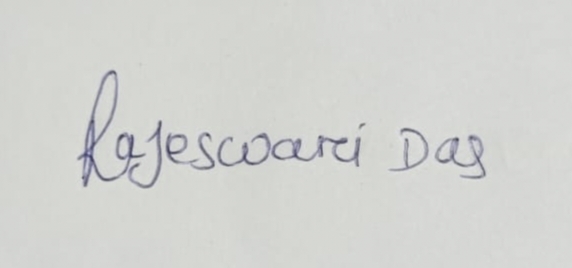 Rajeswari Das